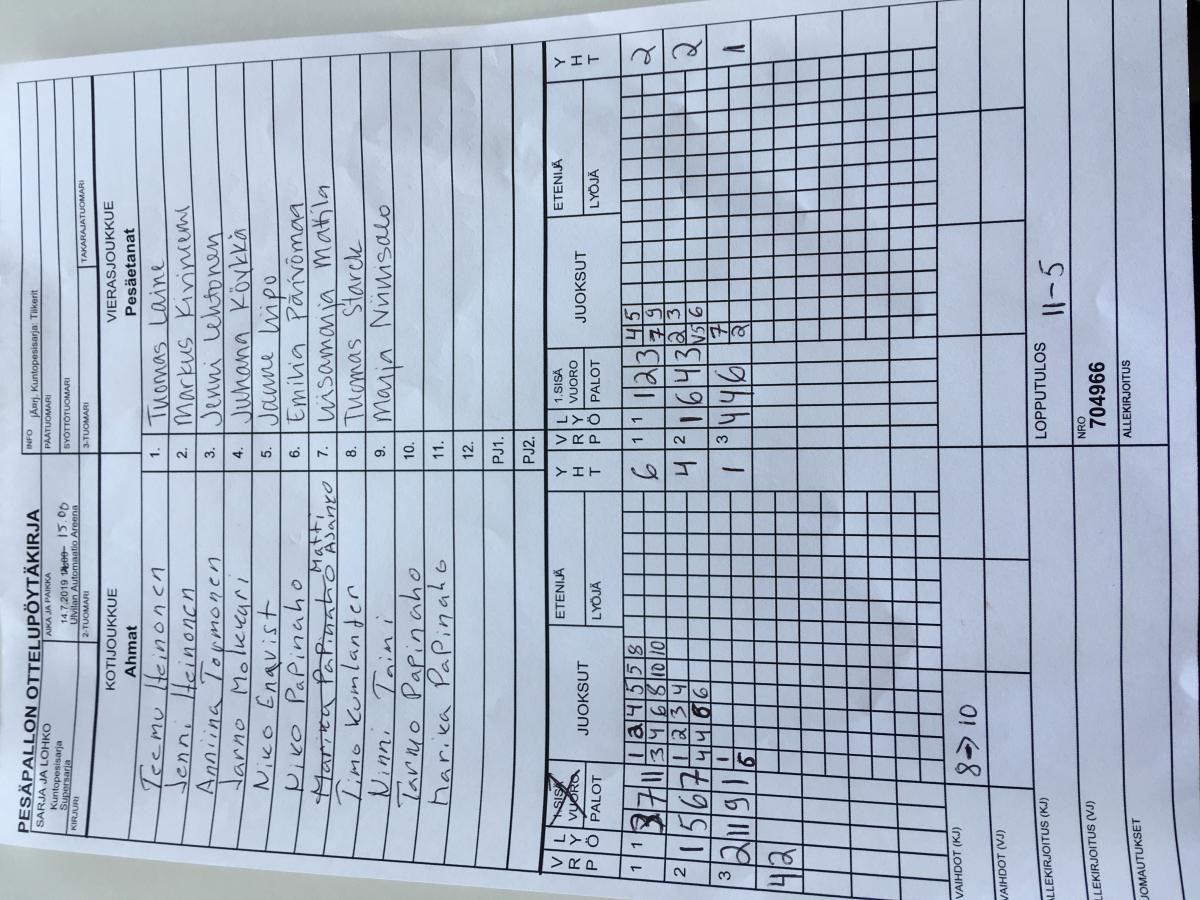 PESÄPALLON OTTELUPÖYTÄKIRJA
INFO jÄrrj. Kuntopesisarja: Tiikerit
SARJA JA LOHKO
Kuntopesisarja
Supersarja
AIKA JA PAIKKA
14.7.2019 15.00
Ulvilan Automaatio Areena
PÄÄTUOMARI
SYÖTTÖTUOMARI
KIRJURI 2-TUOMARI 3-TUOMARI TAKARAJATUOMARI
KOTIJOUKKUE VIERASJOUKKUE
Ahmat Pesäetanat
Teemu Heinonen 1. Tuomas Laine
Jenni Heinonen 2. Markus Kiviniemi
Anniina Topinonen 3. Jenni Lehtonen
Jarno Molkkari 4. Juhana Köykkä
Niko Enqvist 5. Janne Liipo
Niko Papinaho 6. Emilia Päivömaa
Marika Papinaho Matti Asanto 7. Liisamaija Mattila
Timo Kumlander 8. Tuomas Starck
Ninni Taimi 9. Marja Niinisalo
Tarmo Papinaho 10.
Marika Papinaho 11.
12.
PJ1.
PJ2.
V R P L Y Ö 1.SISÄ VUORO PALOT JUOKSUT ETENIJÄ LYÖJÄ Y H T V R P L Y Ö 1.SISÄ VUORO PALOT JUOKSUT ETENIJÄ LYÖJÄ Y H T
1 1 3 7 11 1 2 4 5 5 8 6 1 1 1 2 3 4 5 2
3 4 6 8 10 10 7 9
2 1 5 6 7 1 2 3 4 4 2 1 6 4 3 2 3 2
4 4 6 6 V5 6
3 2 11 9 1 1 1 3 4 4 6 7 1
5 2
4 2
VAIHDOT (KJ) 8 → 10
VAIHDOT (VJ)
ALLEKIRJOITUS (KJ) LOPPUTULOS 11-5
ALLEKIRJOITUS (VJ) NRO 704966
HUOMAUTUKSET ALLEKIRJOITUS